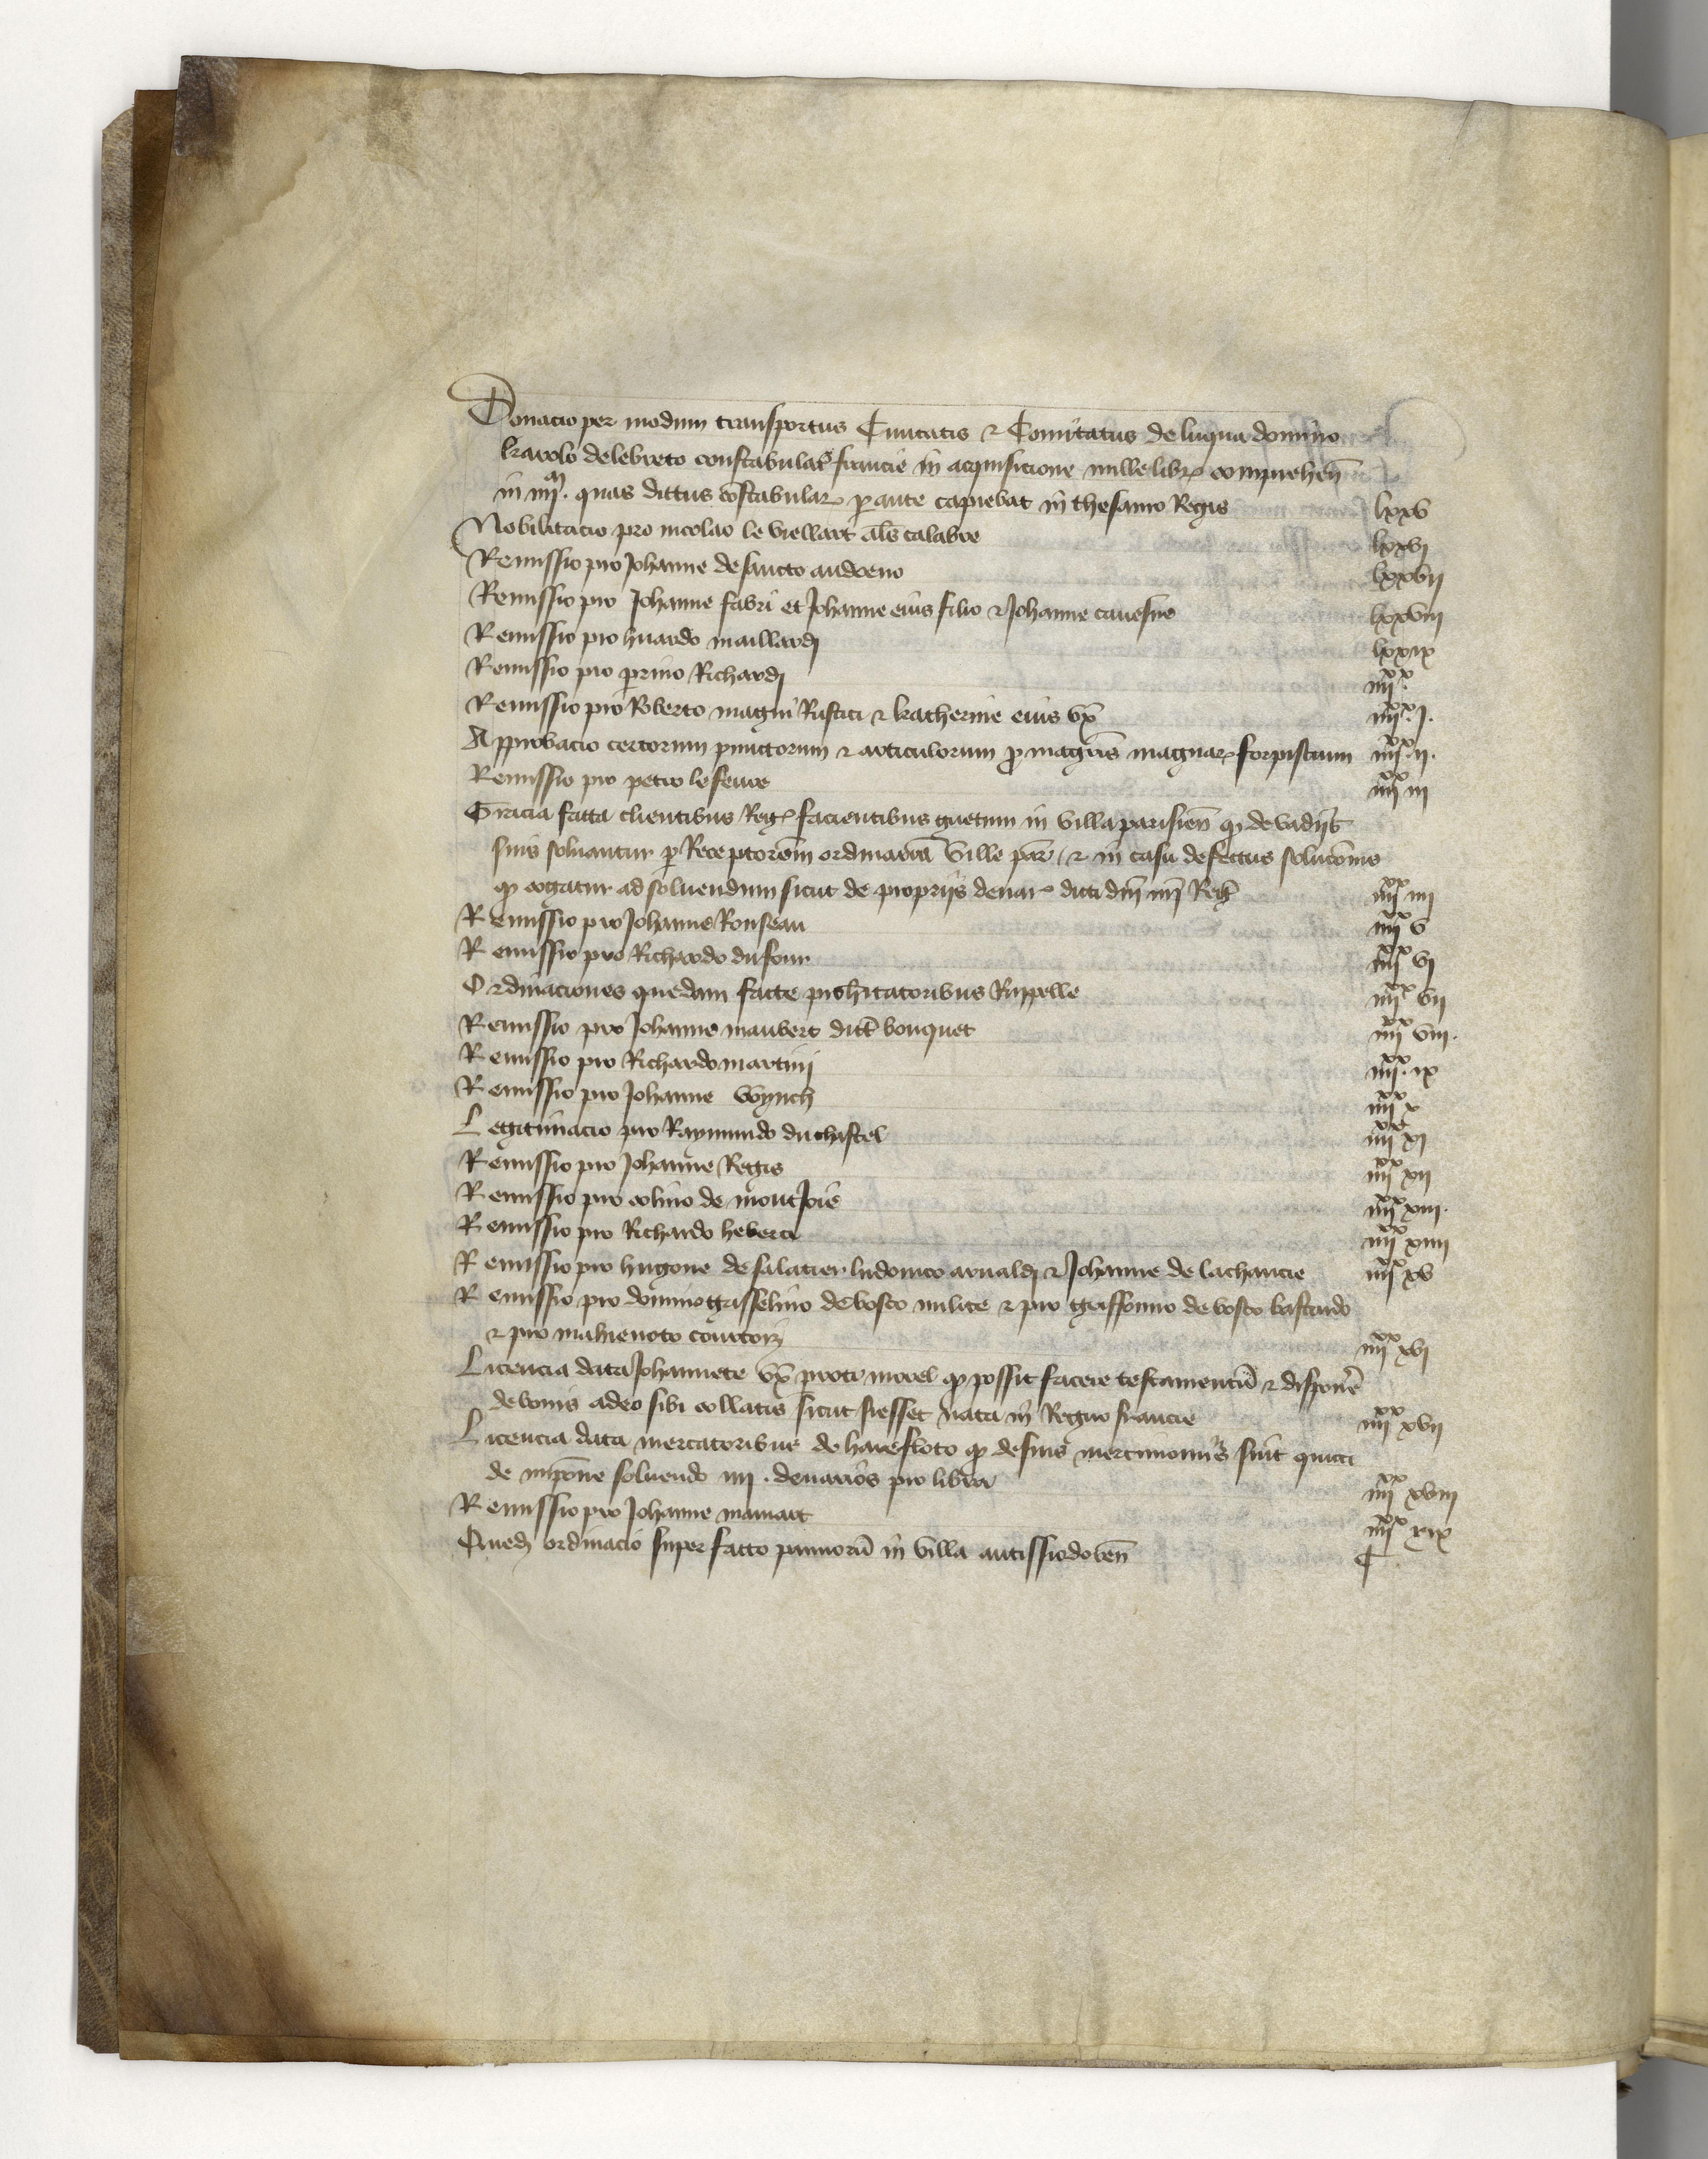 Donacio per modum transportus Civitatis & Comitatus de luqua domino
karolo delebreto constabular francie in acquisicione mille libr comprehen
in iiijm. quas dictus constabular per ante capiebat in thesauro Regis lxxv
Nobilitacio pro nicolao le viellart als calabre lxxvj
Remissio pro Johanne de sancto audoeno lxxvij
Remissio pro Johanne fabri et Johanne eius filio & Johanne cavesne lxxviij
Remissio pro huardo maillardj lxxix
Remissio pro perrino Richardj iiijxx.
Remissio pro Roberto magni Rustici & katherine eius vx iiijxx.j.
Approbacio certorum punctorum & articulorum pro magris magnar forpistarum iiijxx.ij.
Remissio pro petro lefevre iiijxx iij
Gracia facta clientibus Reg facientibus guetum in villa parisien qd de vadijs
suis solvantur per Receptorem ordinarium ville par / & in casu defectus solucionis
qd cogatur ad solvendum sicut de propriis denar dicti dni nri Reg iiijxx iiij
Remissio pro Johanne Rouseau iiijxx v
Remissio pro Richardo dufour iiijxx vj
Ordinaciones quedam facte pro hitatoribus Ruppelle iiijxx vij
Remissio pro Johanne maubert dict bouquet iiijxx viij.
Remissio pro Richardo martini iiijxx. ix
Remissio pro Johanne wynch iiijxx x
Legitimacio pro Raymundo du chastel iiijxx xj
Remissio pro Johanne Regis iiijxx xij
Remissio pro colino de montjoie iiijxx xiij.
Remissio pro Richardo heberti iiijxx xiiij
Remissio pro hugone de salatier ludovico arnaldj & Johanne de lachancie iiijxx xv
Remissio pro domino grasselino de bosco milite & pro grassonno de bosco bastardo
& pro mahienoto courtois iiijxx xvj
Licencia data Johannete vx perroto morel qd possit facere testamentum & disponere
de bonis adeo sibi collatis sicut si esset nata in Regno francie iiijxx xvij
Licencia data mercatoribus de harefloto qd de suis mercimoniis sint quicti
de impone solvendo iiij. denarios pro libra iiijxx xviij
Remissio pro Johanne manart iiijxx xix
Qued ordinacio super facto pannorum in villa autissiodoren C